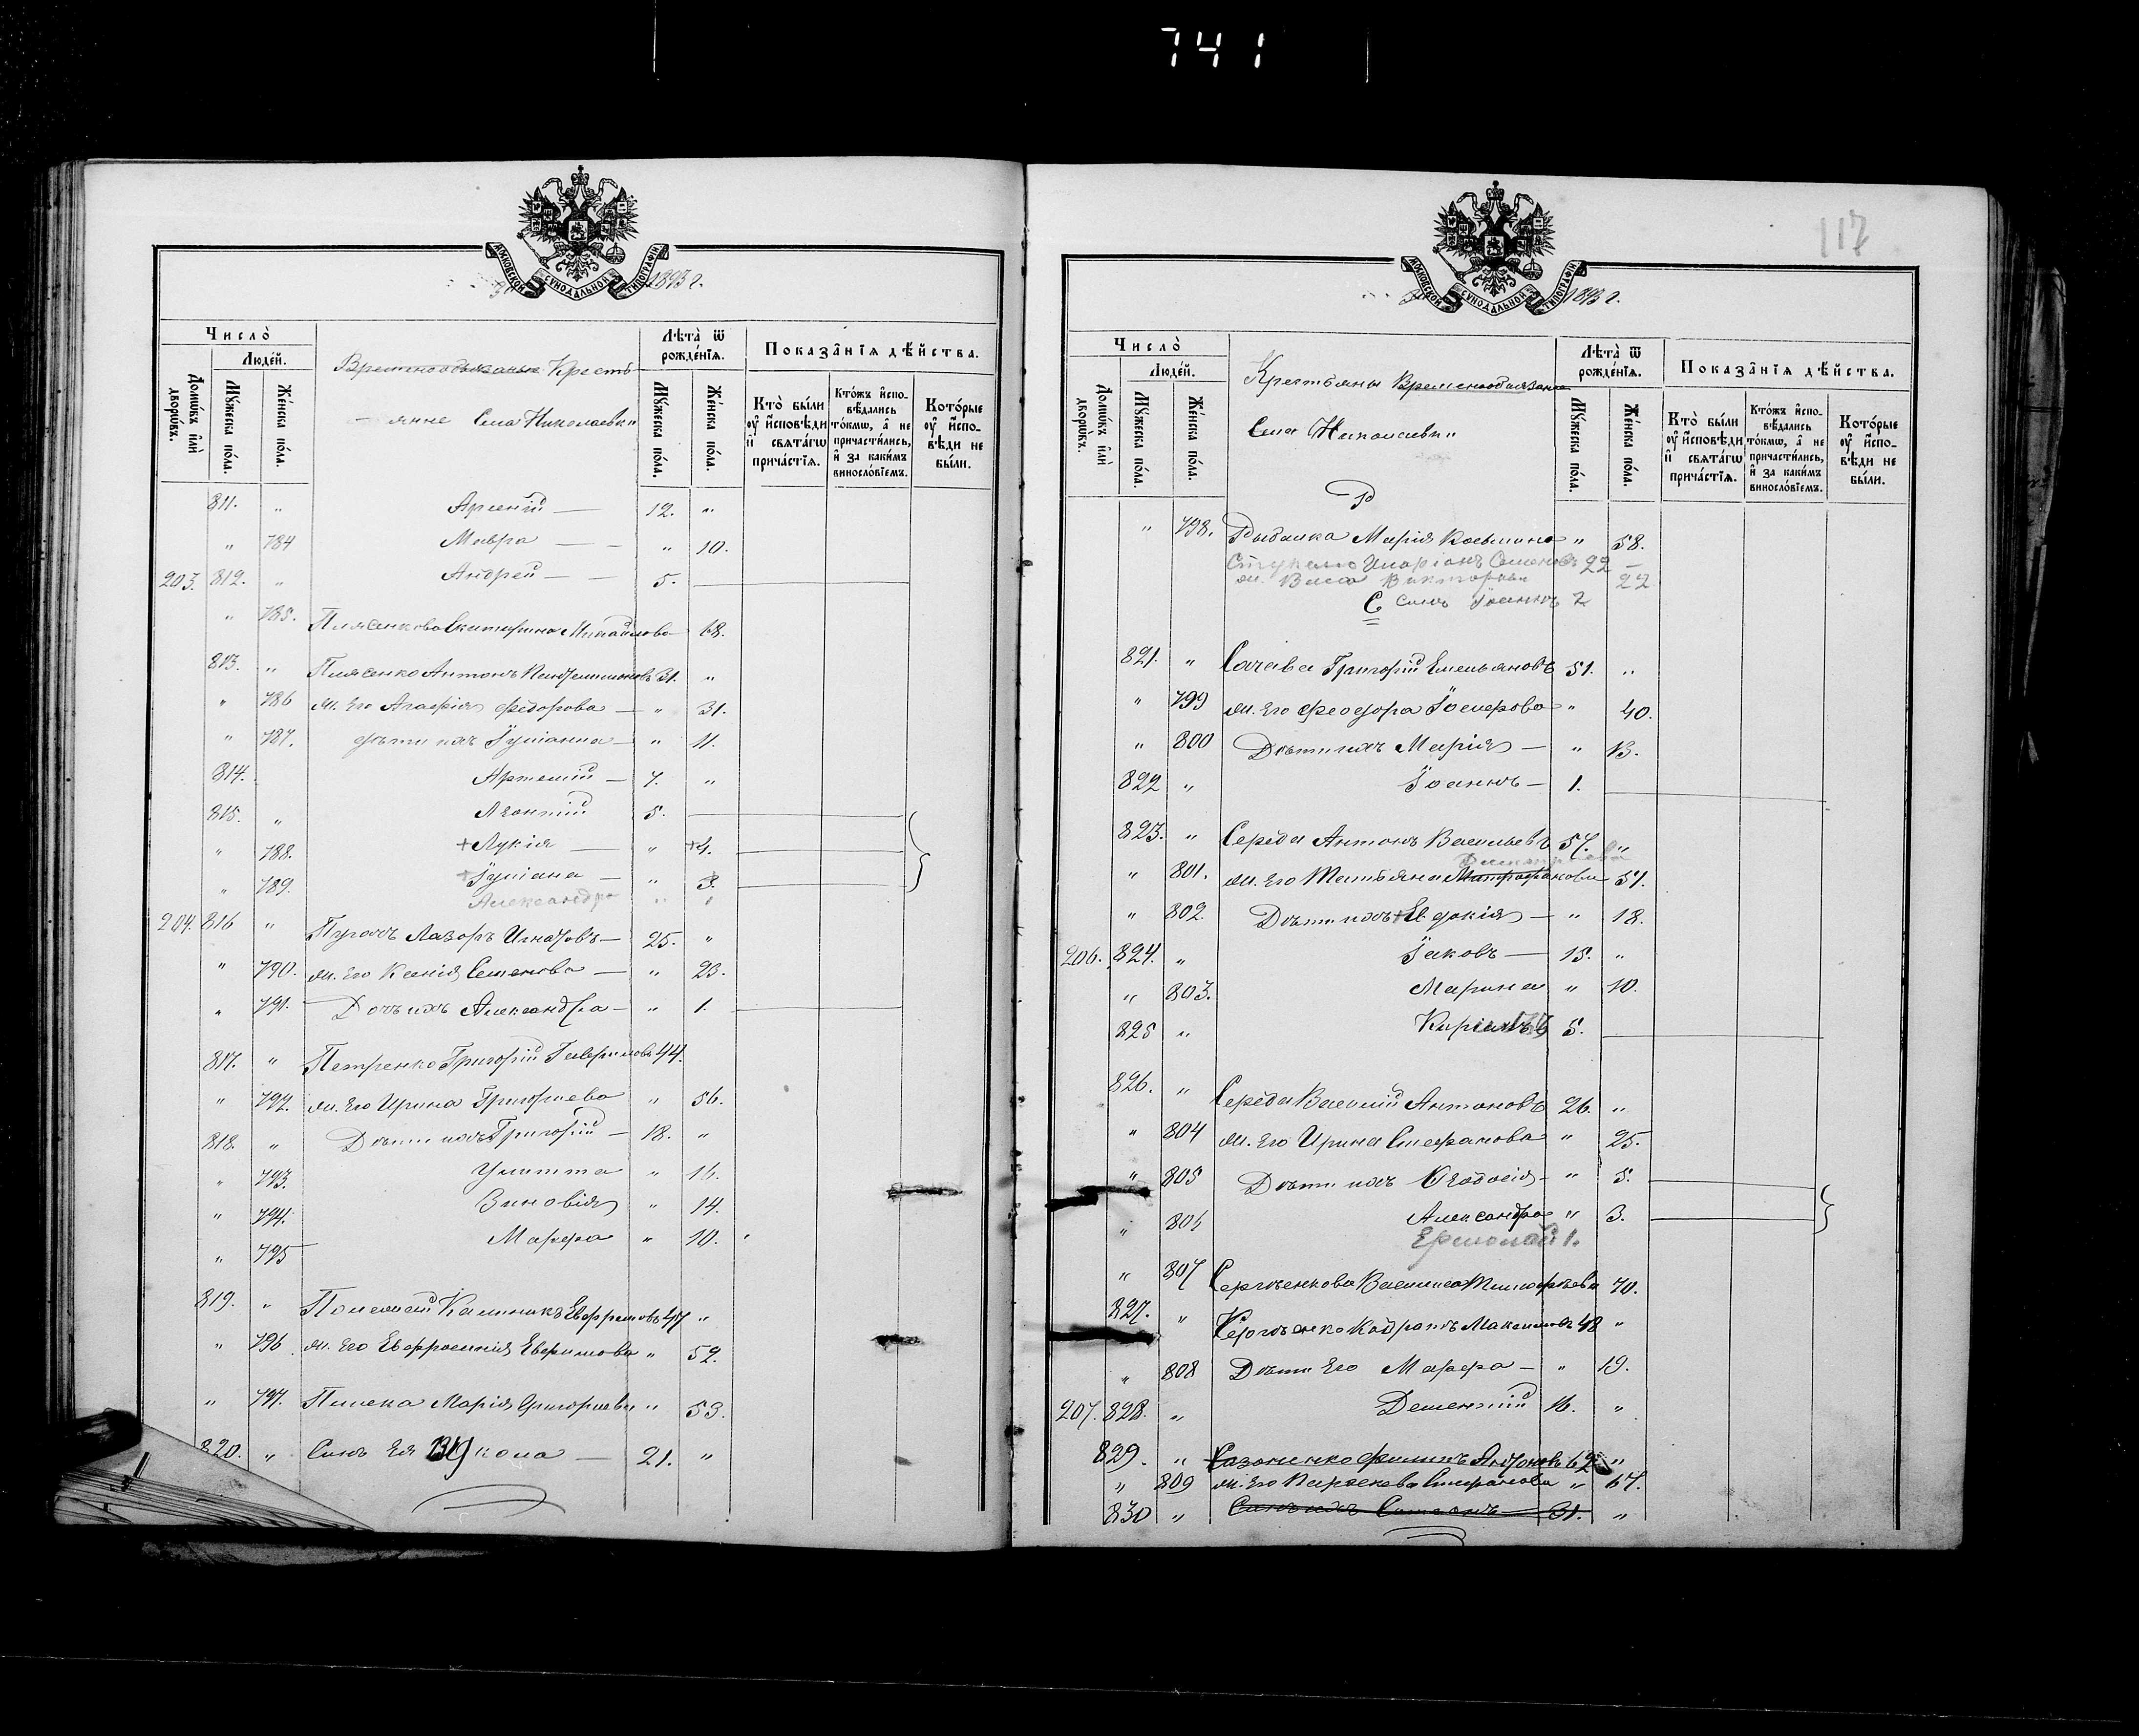 741
МОСКОВСКОЙ СѴНОДАЛЬНОЙ ТИПОГРАФІИ
1893 г.
Число̀
Людей.
Домѡвъ и҆лѝ дворѡвъ.
Мꙋжеска пола.
Женска пола.
Временнообязаные Кресть
яне Села Николаевки
Лѣта̀ ѿ рожденїѧ.
Мꙋжеска пола.
Женска пола.
Показанїѧ дѣйства.
Кто̀ были ᲂу҆ и҆споведи и҆ свѧтагѡ причастїѧ.
Ктожъ и҆сповѣдались токмѡ, а҆ не причастились, и҆ за какимъ винословїемъ.
Которые ᲂу҆ и҆сповѣди не были.
811. " Арсеній — 12. "
" 784 Мавра — " 10.
203. 812. " Андрей — 5.
" 785. Плясенкова Екатерина Михайлова 68.
813. " Плясенко Антонъ Пантелимоновъ 31. "
" 786 ж. Его Агафія Федорова — " 31.
" 787. дѣти ихъ Іуліанна — " 11.
814. Артемій — 7. "
815. " Леонтій 5.
" 788. + Лукія — " +4.
" 789. + Іуліана — " 3.
Александра
204. 816 " Пугачъ Лазоръ Игнатовъ — 25. "
" 790. ж. Его Ксенія Семенова — " 23.
" 791. Дочь ихъ Александра — " 1.
817. " Петренко Григорій Гавриловъ 44.
" 792. ж. Его Ирина Григорьева " 56.
818. " Дѣти ихъ Григорій — 18. "
" 793. Улитта " 16.
" 794. Зиновія " 14.
" 795 Марфа " 10.
819. " Калиникъ Евфремовъ 47 "
" 796 ж. Его Евфросинія Ефимова " 52.
" 797. Марія Григорьева " 53.
820. " Сынъ Ея 21. "
117
МОСКОВСКОЙ СѴНОДАЛЬНОЙ ТИПОГРАФІИ
1893 г.
Число̀
Людей.
Домѡвъ и҆лѝ дворѡвъ.
Мꙋжеска пола.
Женска пола.
Крестьяны Временообязаные
Села Николаевки
Лѣта̀ ѿ рожденїѧ.
Мꙋжеска пола.
Женска пола.
Показанїѧ дѣйства.
Кто̀ были ᲂу҆ и҆споведи и҆ свѧтагѡ причастїѧ.
Ктожъ и҆сповѣдались токмѡ, а҆ не причастились, и҆ за какимъ винословїемъ.
Которые ᲂу҆ и҆сповѣди не были.
Р
" 798. Рыбалка Марія Косьмина " 58.
Стукало Иларіонъ Семеновъ 22 —
ж. Васса Викторова 22
С сынъ Іоаннъ 2
821. " Сачава Григорій Емельяновъ 51. "
" 799 ж. Его Феодора Іосифова " 40.
" 800 Дѣти ихъ Марія — " 13.
822 " Іоаннъ — 1.
823. " Середа Антонъ Васильевъ 57. "
Димитріева
" 801. ж. Его Татьяна Митрофанова 51.
" 802. Дѣти ихъ + Евдокія — " 18.
206. 824. " Іаковъ — 15. "
" 803. Марина " 10.
825 " Кирилъ 5.
826. " Середа Василій Антоновъ 26. "
" 804 ж. Его Ирина Стефанова " 25.
" 805 Дѣти ихъ Феодосія — " 5.
" 806 Александра " 3.
Ермолай 1.
" 807 Сергѣенкова Василиса Тимофѣева 70.
827. " Сергѣенко Кодратъ Максимовъ 48 "
" 808 Дѣти Его Марфа — " 19.
207. 828. " Дементій 16. "
829. " Сазоненко Филипъ Антоновъ 62 "
" 809 ж. Его Параскева Стефанова " 67.
830 " Сынъ ихъ Симеонъ 31. "